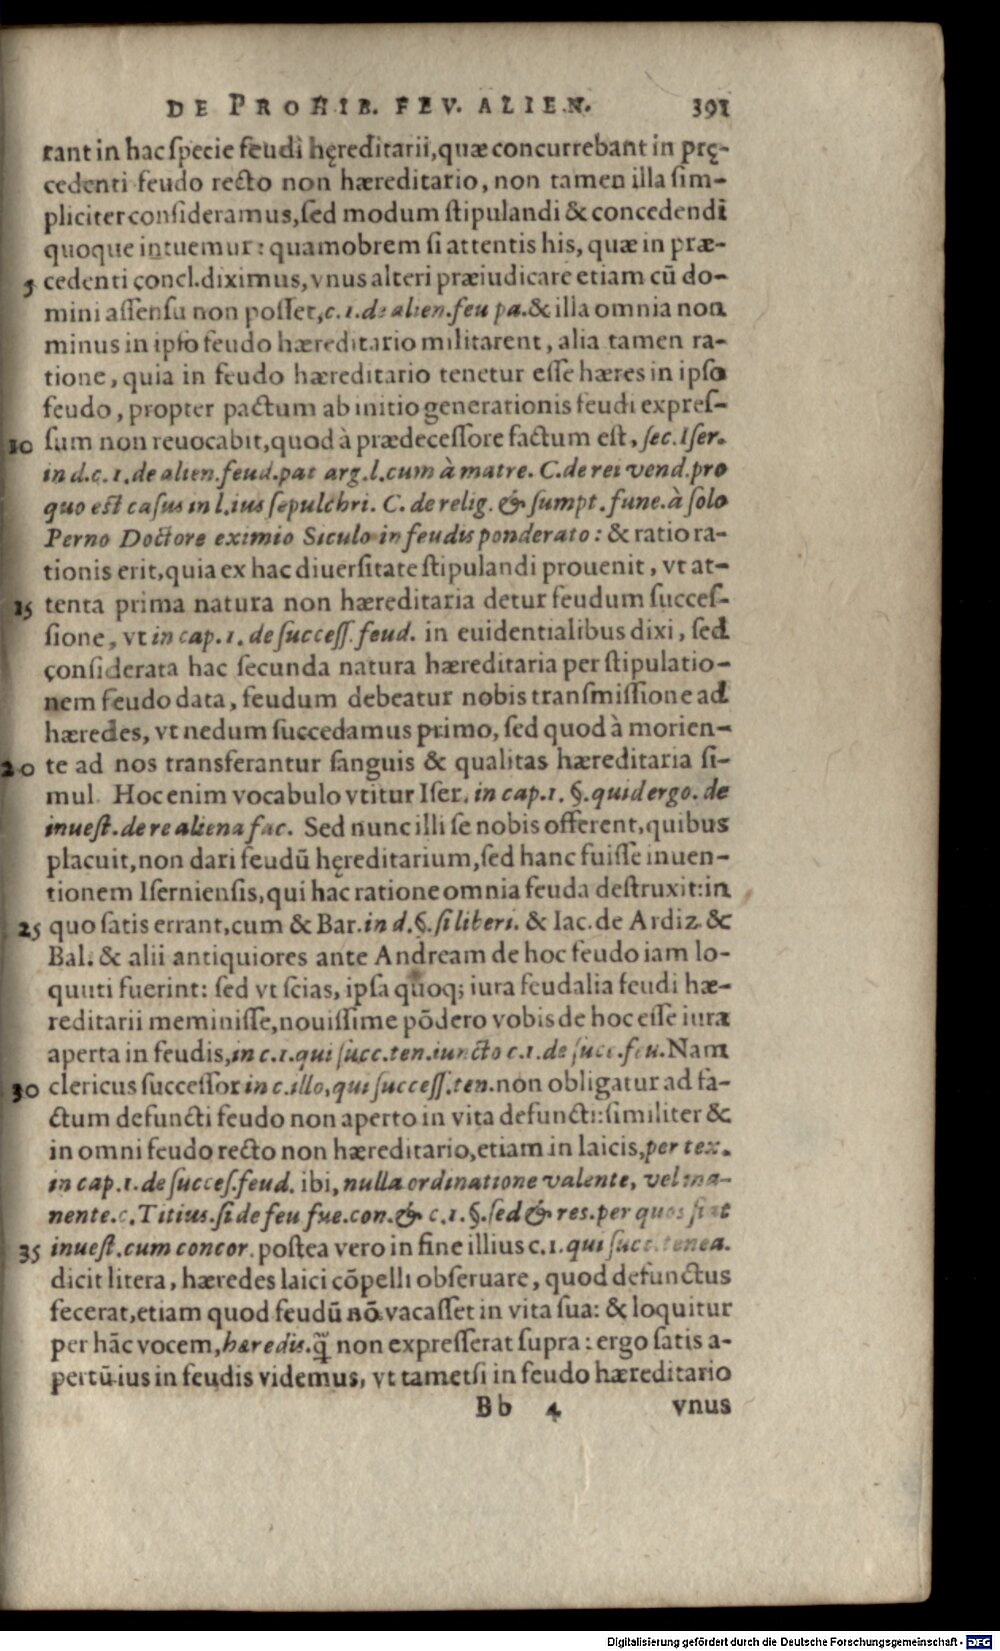 DE PROHIB. FEV. ALIEN. 391
rant in hac ſpecie feudi hęreditarii, quæ concurrebant in prę-
cedenti feudo recto non hæreditario, non tamen illa ſim-
pliciter conſideramus, ſed modum ſtipulandi & concedendi
quoque intuemur: quamobrem ſi attentis his, quæ in præ-
5 cedenti concl. diximus, vnus alteri præiudicare etiam cũ do-
mini aſſenſu non poſſet, c. 1. de alien. feu pa. & illa omnia non
minus in ipſo feudo hæreditario militarent, alia tamen ra-
tione, quia in feudo hæreditario tenetur eſſe hæres in ipſo
feudo, propter pactum ab initio generationis feudi expreſ-
10 ſum non reuocabit, quod à prædeceſſore factum eſt, ſec. Iſer.
in d. c. 1. de alien. feud. pat arg. l. cum à matre. C. de rei vend. pro
quo eſt caſus in l. ius ſepulchri. C. de relig. & ſumpt. fune. à ſolo
Perno Doctore eximio Siculo in feudis ponderato: & ratio ra-
tionis erit, quia ex hac diuerſitate ſtipulandi prouenit, vt at-
15 tenta prima natura non hæreditaria detur feudum ſucceſ-
ſione, vt in cap. 1. de ſucceſſ. feud. in euidentialibus dixi, ſed
conſiderata hac ſecunda natura hæreditaria per ſtipulatio-
nem feudo data, feudum debeatur nobis tranſmiſſione ad
hæredes, vt nedum ſuccedamus primo, ſed quod à morien-
20 te ad nos transferantur ſanguis & qualitas hæreditaria ſi-
mul. Hoc enim vocabulo vtitur Iſer. in cap. 1. §. quid ergo. de
inueſt. de re aliena fac. Sed nunc illi ſe nobis offerent, quibus
placuit, non dari feudũ hęreditarium, ſed hanc fuiſſe inuen-
tionem Iſernienſis, qui hac ratione omnia feuda deſtruxit: in
25 quo ſatis errant, cum & Bar. in d. §. ſi liberi. & Iac. de Ardiz. &
Bal. & alii antiquiores ante Andream de hoc feudo iam lo-
quuti fuerint: ſed vt ſcias, ipſa quoq; iura feudalia feudi hæ-
reditarii meminiſſe, nouiſſime põdero vobis de hoc eſſe iura
aperta in feudis, in c. 1. qui ſucc. ten. iuncto c. 1. de ſucc. feu. Nam
30 clericus ſucceſſor in c. illo, qui ſucceſſ. ten. non obligatur ad fa-
ctum defuncti feudo non aperto in vita defuncti: ſimiliter &
in omni feudo recto non hæreditario, etiam in laicis, per tex.
in cap. 1. de ſucceſ. feud. ibi, nulla ordinatione valente, vel ma-
nente. c. Titius. ſi de feu fue. con. & c. 1. §. ſed & res. per quos fiat
35 inueſt. cum concor. poſtea vero in fine illius c. 1. qui ſucc. tenea.
dicit litera, hæredes laici cõpelli obſeruare, quod defunctus
fecerat, etiam quod feudũ nõ vacaſſet in vita ſua: & loquitur
per hãc vocem, hæredis. q̃ non expreſſerat ſupra: ergo ſatis a-
pertũ ius in feudis videmus, vt tametſi in feudo hæreditario
Bb 4 vnus
Digitalisierung gefördert durch die Deutsche Forschungsgemeinschaft - DFG